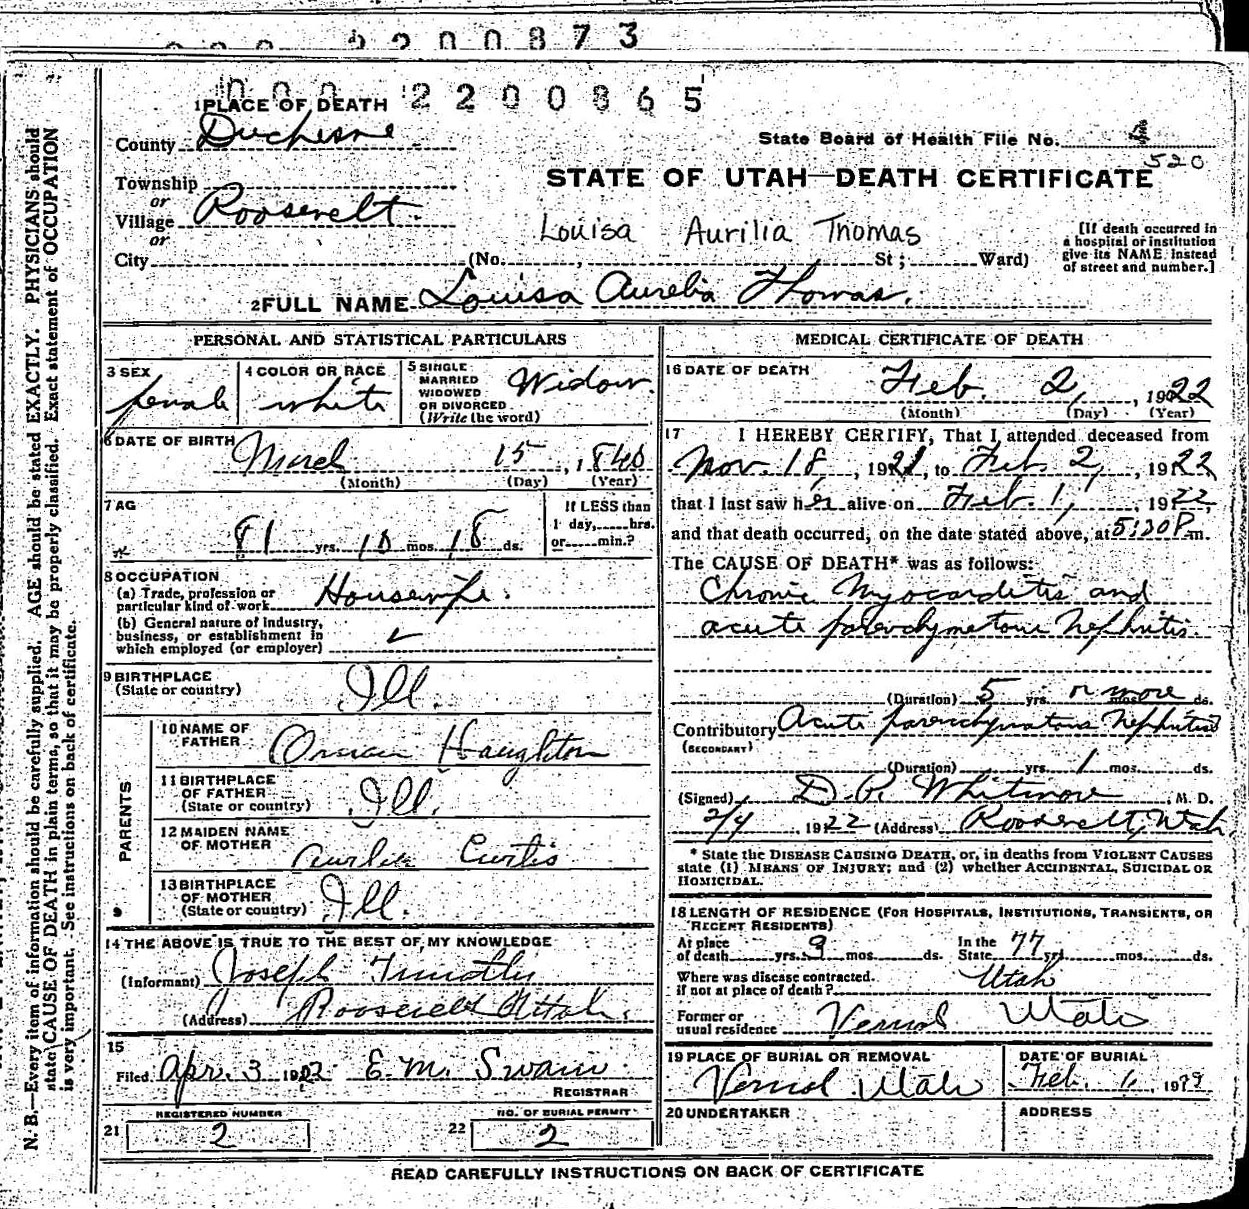 2200873
000 2200865
1 PLACE OF DEATH
County Duchesne
State Board of Health File No. 4
520
Township
or
Village Roosevelt.
or
STATE OF UTAH—DEATH CERTIFICATE
Louisa Aurilia Thomas
City (No. , St ; Ward)
[If death occurred in
a hospital or institution
give its NAME instead
of street and number.]
2 FULL NAME Louisa Aurelia Thomas.
PERSONAL AND STATISTICAL PARTICULARS
3 SEX
female
4 COLOR OR RACE
white
5 SINGLE
MARRIED
WIDOWED
OR DIVORCED
(Write the word)
Widow.
6 DATE OF BIRTH
March 15, 1840
(Month) (Day) (Year)
7 AG
81 yrs. 10 mos. 18 ds.
If LESS than
1 day, hrs.
or min.?
8 OCCUPATION
(a) Trade, profession or
particular kind of work Housewife.
(b) General nature of industry,
business, or establishment in
which employed (or employer)
9 BIRTHPLACE
(State or country) Ill.
PARENTS
10 NAME OF
FATHER Orman Haughton
11 BIRTHPLACE
OF FATHER
(State or country) Ill.
12 MAIDEN NAME
OF MOTHER Aurlia Curtis
13 BIRTHPLACE
OF MOTHER
(State or country) Ill.
14 THE ABOVE IS TRUE TO THE BEST OF MY KNOWLEDGE
(Informant) Joseph Timothy
(Address) Roosevelt Utah.
15
Filed Apr. 3 1922 E. M. Swain.
REGISTRAR
REGISTERED NUMBER
21 2
NO. OF BURIAL PERMIT
22 2
MEDICAL CERTIFICATE OF DEATH
16 DATE OF DEATH
Feb. 2, 1922
(Month) (Day) (Year)
17 I HEREBY CERTIFY, That I attended deceased from
Nov. 18, 1921, to Feb. 2, 1922
that I last saw her alive on Feb. 1, 1922,
and that death occurred, on the date stated above, at 5:30 P. m.
The CAUSE OF DEATH* was as follows:
Chronic Myocarditis and
acute parenchymatous Nephritis.
(Duration) 5 yrs. or more mos. ds.
Contributory Acute parenchymatous Nephritis
(SECONDARY)
(Duration) yrs. 1 mos. ds.
(Signed) D. P. Whitmore, M. D.
2/4, 1922 (Address) Roosevelt, Utah.
* State the DISEASE CAUSING DEATH, or, in deaths from VIOLENT CAUSES
state (1) MEANS OF INJURY; and (2) whether ACCIDENTAL, SUICIDAL OR
HOMICIDAL.
18 LENGTH OF RESIDENCE (FOR HOSPITALS, INSTITUTIONS, TRANSIENTS, OR
RECENT RESIDENTS)
At place
of death yrs. 9 mos. ds.
In the
State 77 yrs. mos. ds.
Where was disease contracted.
if not at place of death? Utah
Former or
usual residence Vernal Utah
19 PLACE OF BURIAL OR REMOVAL
Vernal Utah
DATE OF BURIAL
Feb. 1, 19
20 UNDERTAKER
ADDRESS
READ CAREFULLY INSTRUCTIONS ON BACK OF CERTIFICATE
N. B.—Every item of information should be carefully supplied. AGE should be stated EXACTLY. PHYSICIANS should
state CAUSE OF DEATH in plain terms, so that it may be properly classified. Exact statement of OCCUPATION
is very important. See instructions on back of certificate.